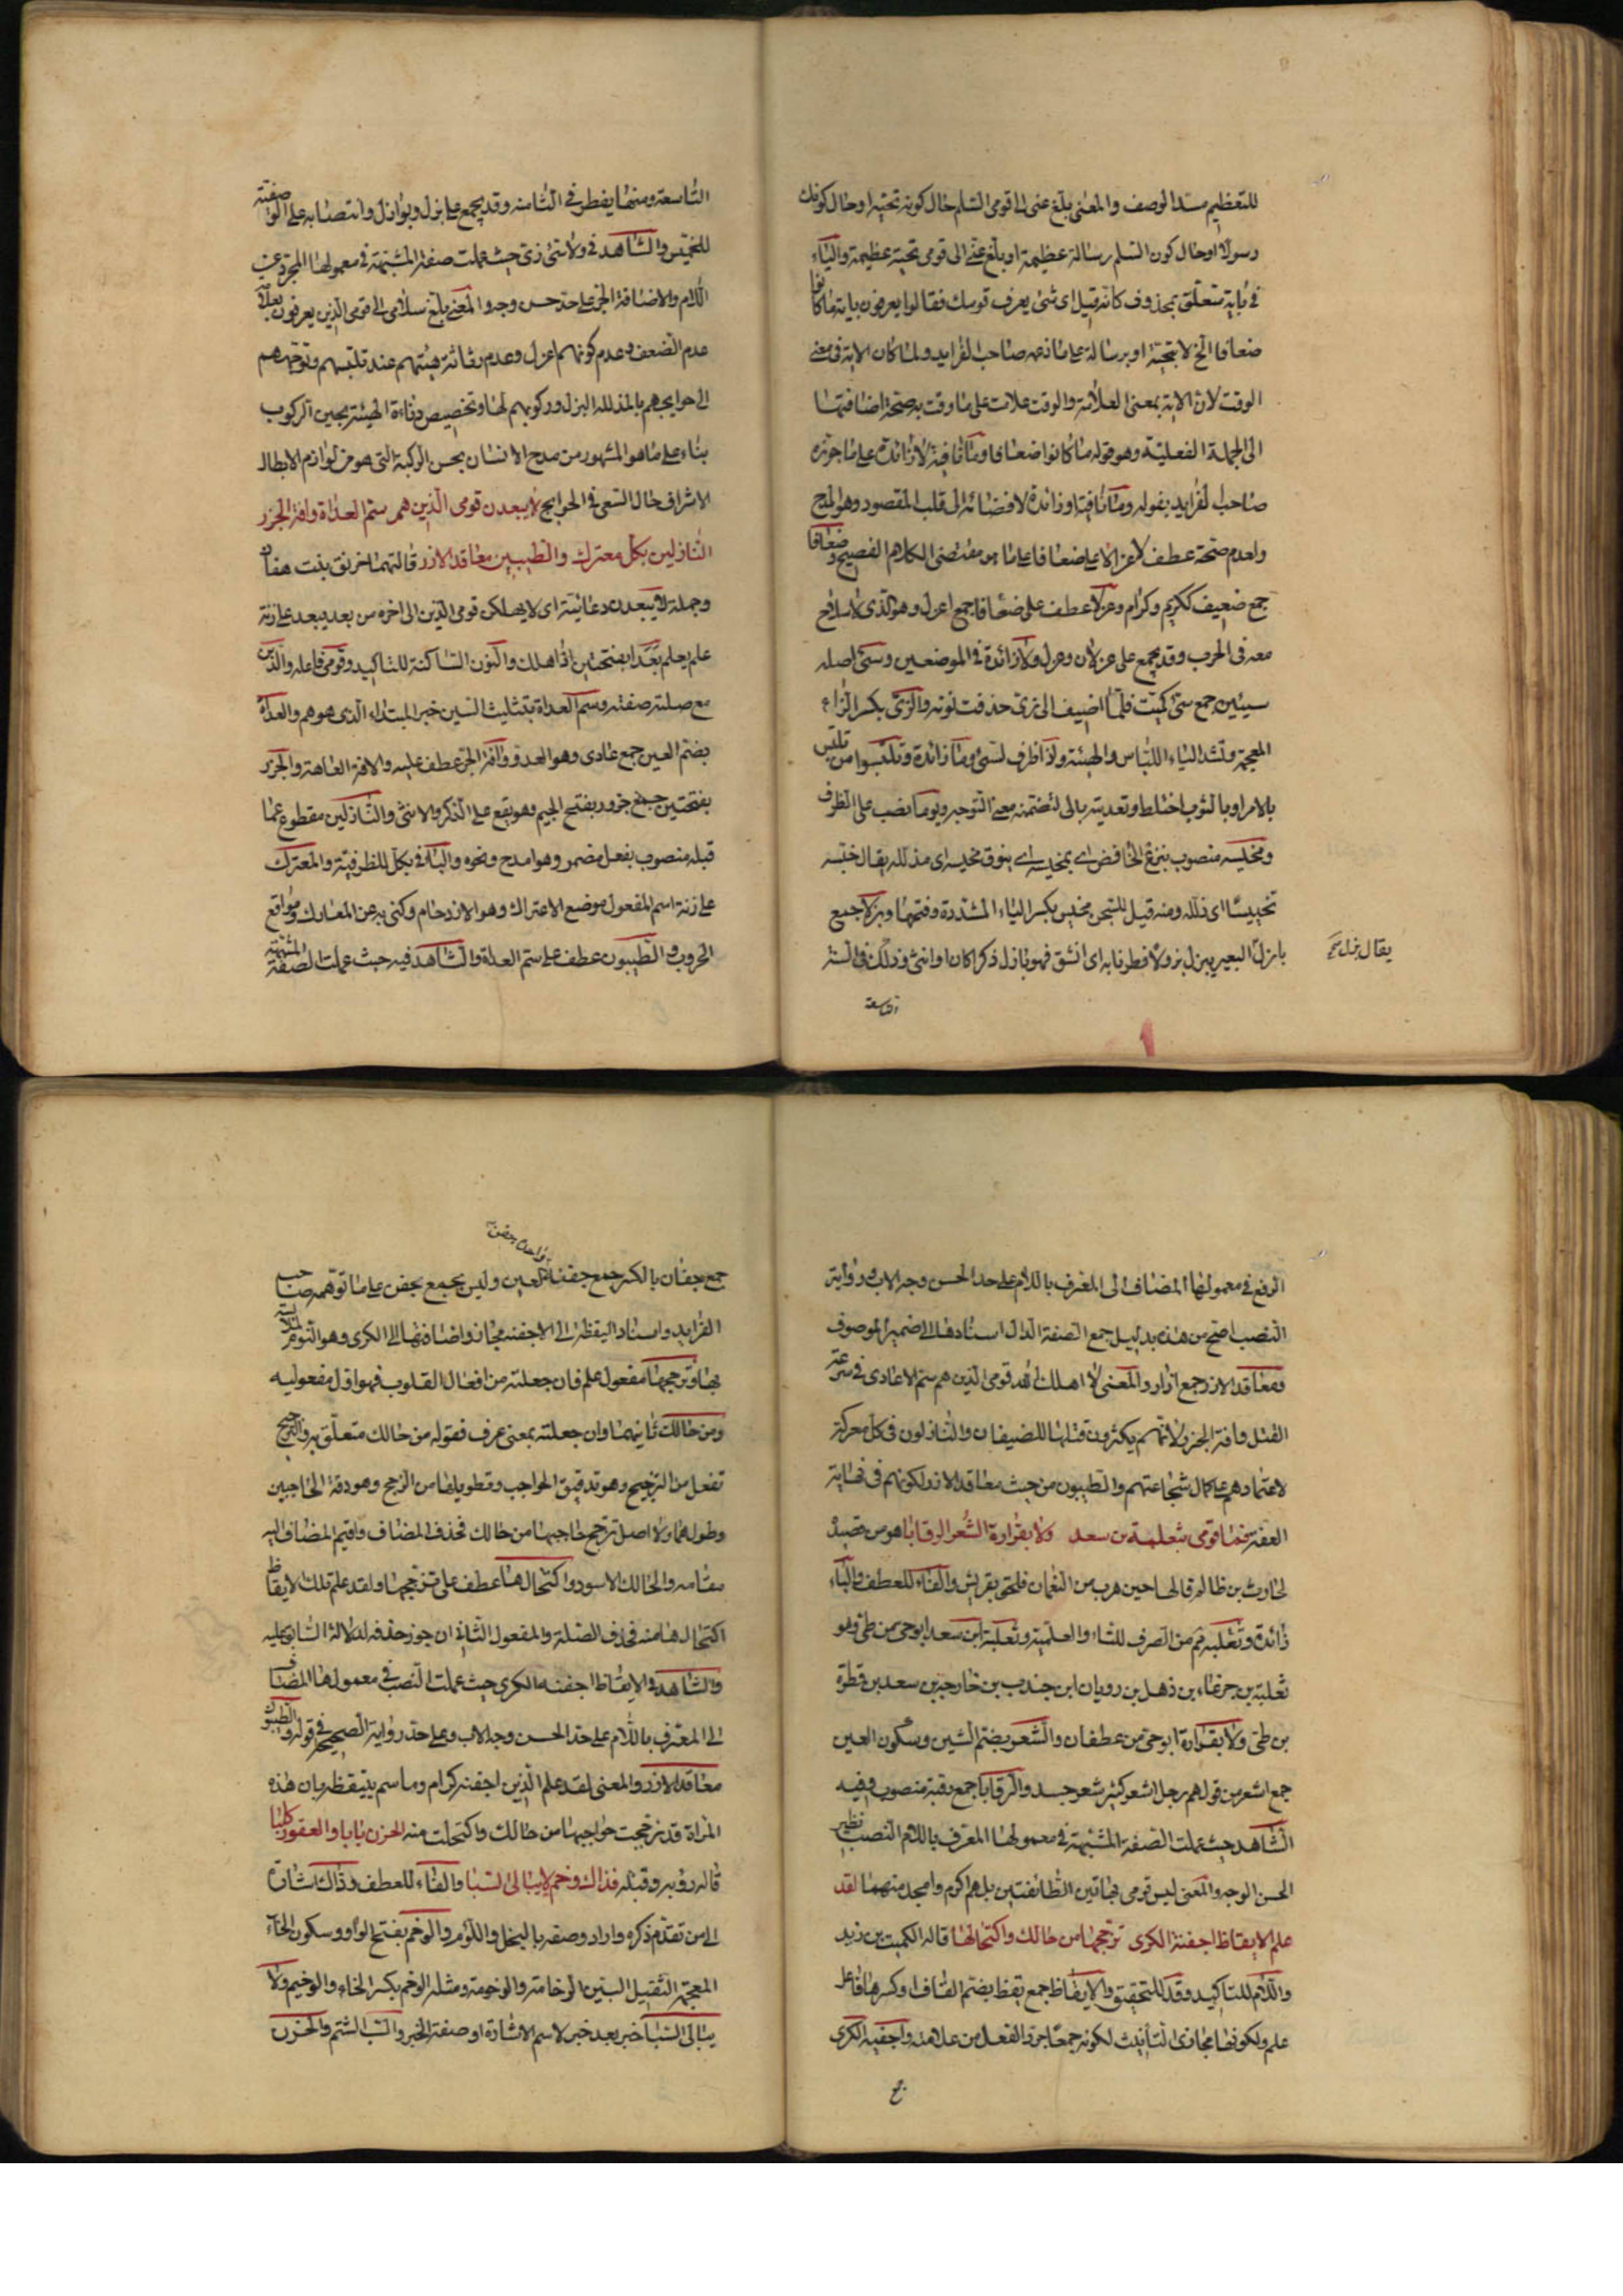 للتعظيم مسد الوصف والمعنى بلغ عنى الى قومى السلم حال كونه تحية اوحال كونك
رسولا اوحال كون السلم رسالة عظيمة او بلغ عنى الى قومى تحية عظيمة والباء
فى باية متعلق بمحذوف كانه قيل اى شئ يعرف قومك فقالوا يعرفون باية ما كانوا
ضعافا الخ لا بتحية او برسالة على ما زعمه صاحب الفرايد ولما كان الاية فى معنى
الوقت لان الاية بمعنى العلامة والوقت علامت على ما وقت به صحة اضافتها
الى الجملة الفعلية وهو قوله ما كانوا ضعافا وما نافية لا زائدة على ما جوزه
صاحب الفرايد بقوله وما نافية او زائدة لافضائه الى قلب المقصود وهو المدح
ولعدم صحة عطف لا عزلا على ضعافا على ما هو مقتضى الكلام الفصيح وضعافا
جمع ضعيف ككريم وكرام وعزلا عطف على ضعافا جمع اعزل وهو الذى لا سلاح
معه فى الحرب وقد يجمع على عزلان وعزل ولا زائدة فى الموضعين وسئ اصله
سيئين جمع سئ كميت فلما اضيف الى زى حذفت نونه والزى بكسر الزاء
المعجمة وتشد الياء اللباس والهيئة واذا ظرف لسئ وما زائدة وتلبسوا من تلبس
بالامر او بالثوب اختلط وتعديته بالى لتضمنه معنى التوجه ويوما نصب على الظرف
ومخيسه منصوب بنزع الخافض اى بمخيسه اى بنوق مخيسه اى مذلله يقال خيسه
تخييسا اى ذلله ومنه قيل للسجن مخيس بكسر الياء المشددة وفتحها وبزلا جمع
بازل البعير يبزل بزولا فطر نابه اى انشق فهو بازل ذكرا كان او انثى وذلك فى السنة
يقال بزل
التاسعة
التاسعة ومنها يفطر فى الثامنه وقد يجمع على بزل وبوازل وانتصابه على الوصفية
للمخيس والشاهد فى ولا سئ زى حيث عملت صفة المشبهة فى معمولها المجرد عن
اللام والاضافة الجر على حد حسن وجه والمعنى بلغ سلامى الى قومى الذين يعرفون بعلامة
عدم الضعف وعدم كونهم اعزل وعدم رثاثة هيئتهم عند تلبسهم وتوجههم
الى حوايجهم بالمذلله البزل وركوبهم لها وتخصيص دناءة الهيئة بحين الركوب
بناء على ما هو المشهور من مدح الانسان بحسن الركبة التى هو من لوازم الابطال
الاشراف حال السعى فى الحوايج لا يبعدن قومى الذين هم سم العداة وافة الجزر
النازلين بكل معترك والطيبين معاقد الازر قالتهما خرنق بنت هفان
وجملة لا يبعدن دعائية اى لا يهلكن قومى الذين الى اخره من بعد يبعد على زنة
علم يعلم بعدا بفتحتين اذا هلك والنون الساكنة للتاكيد وقومى فاعله والذين
مع صلته صفته وسم العداة بتثليث السين خبر المبتداء الذى هو هم والعداة
بضم العين جمع عادى وهو العدو وافة الجزر عطف عليه والافة العاهة والجزر
بفتحتين جمع جزور بفتح الجيم وهو يقع على الذكر والانثى والنازلين مقطوع عما
قبله منصوب بفعل مضمر وهو امدح ونحوه والباء فى بكل للظرفية والمعترك
على زنة اسم المفعول موضع الاعتراك وهو الازدحام وكنى به عن المعارك ومواقع
الحروب والطيبون عطف على سم العداة والشاهد فيه حيث عملت الصفة المشبهة
الرفع فى معمولها المضاف الى المعرف باللام على حد الحسن وجه الاب ورواية
النصب اصح من هذه بدليل جمع الصفة الدال اسنادها الى ضمير الموصوف
ومعاقد الازر جمع ازار والمعنى لا اهلك الله قومى الذين هم سم الاعادى فى سرعة
القتل وافة الجزر لانهم يكثرون قتلها للضيفان والنازلون فى كل معركة
لاعتمادهم على كمال شجاعتهم والطيبون من حيث معاقد الازر لكونهم فى نهاية
العفة فما قومى بثعلبة بن سعد ولا بفزارة الشعر الرقابا هو من قصيدة
لحارث بن ظالم قالها حين هرب من النعمان فلحق بقريش والفاء للعطف والباء
زائدة وثعلبه منع من الصرف للتاء والعلمية وثعلبة ابن سعد ابو حى من طى وهو
ثعلبة بن جدعاء بن ذهل بن رويان ابن جندب بن خارجة بن سعد بن فطرة
بن طى ولا بفزارة ابو حى من غطفان والشعر بضم الشين وسكون العين
جمع اشعر من قولهم رجل اشعر كثير شعر جسده والرقابا جمع رقبة منصوب وفيه
الشاهد حيث عملت الصفة المشبهة فى معمولها المعرف باللام النصب نظير
الحسن الوجه والمعنى ليس قومى بهاتين الطائفتين بل هم اكرم وامجد منهما لقد
علم الايقاظ اجفنة الكرى تزججها من حالك واكتحالها قاله الكميت بن زيد
واللام للتاكيد وقد للتحقيق والايقاظ جمع يقظ بضم القاف او كسرها فاعل
علم ولكونها مجازى التانيث لكونه جمعا جرد الفعل من علامته واجفنة الكرى
جمع جفان بالكسر جمع جفنة العين وليس بجمع جفن على ما توهمه صاحب
واحدة جفن
الفرايد واسناد اليقظة الى الاجفنة مجاز واضافتها الى الكرى وهو النوم لملابسة
بها وتزججها مفعول علم فان جعلته من افعال القلوب فهو اول مفعوليه
ومن حالك ثانيهما وان جعلته بمعنى عرف فقوله من حالك متعلق به والتزجج
تفعل من التزجيج وهو تدقيق الحواجب وتطويلها من الزجج وهو دقة الحاجبين
وطولهما والاصل تزجج حاجبها من حالك فحذف المضاف واقيم المضاف اليه
مقامه والحالك الاسود واكتحالها عطف على تزججها ولقد علم تلك الايقاظ
اكتحالها منه فحذف الصلة والمفعول الثانى ان جوز حذفه لدلالة السابق عليه
والشاهد فى الايقاظ اجفنة الكرى حيث عملت النصب فى معمولها المضاف
الى المعرف باللام على حد الحسن وجه الاب وعلى حد رواية الصحيح فى قوله والطيبون
معاقد الازر والمعنى لقد علم الذين اجفنة كرام وما سم يتيقظه بان هذه
المراة قد تزججت حواجبها من حالك واكتحلت منه الحزن بابا والعقور كلبا
قاله رؤبه وقبله فذاك وخم لا يبالى السبا والفاء للعطف وذاك اشارة
الى من تقدم ذكره واراد وصفه بالبخل واللؤم والوخم بفتح الواو وسكون الخاء
المعجمة الثقيل البين الوخامة والوخومة ومثله الوخم بكسر الخاء والوخيم ولا
يبالى السبا خبر بعد خبر لاسم الاشارة او صفة الخبر والسب الشتم والحزن